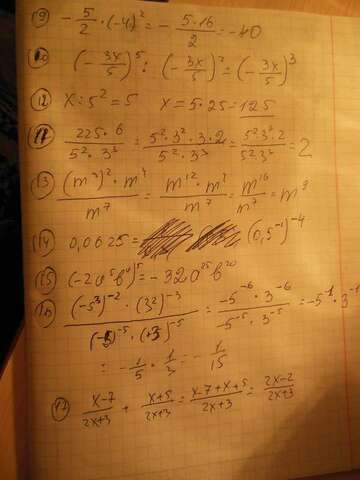 19) -5/2 · (-4)² = -(5·16)/2 = -40
(-3x/5)⁵ : (-3x/5)² = (-3x/5)³
12 x : 5² = 5 x = 5·25 = 125
(225·6)/(5²·3³) = (5²·3²·3·2)/(5²·3³) = (5²3³·2)/(5²3³) = 2
13 ((m³)²·m⁴)/m⁷ = (m¹²·m⁴)/m⁷ = m¹⁶/m⁷ = m⁹
14 0,0625 = (0,5⁻¹)⁻⁴
15 (-2a⁵b⁴)⁵ = -32a²⁵b²⁰
16 ((-5³)⁻²·(3²)⁻³)/((-5)⁻⁵·(+3)⁻⁵) = (-5⁻⁶·3⁻⁶)/(-5⁻⁵·3⁻⁵) = -5⁻¹·3⁻¹
= -1/5 · 1/3 = -1/15
17 (x-7)/(2x+3) + (x+5)/(2x+3) = (x-7+x+5)/(2x+3) = (2x-2)/(2x+3)